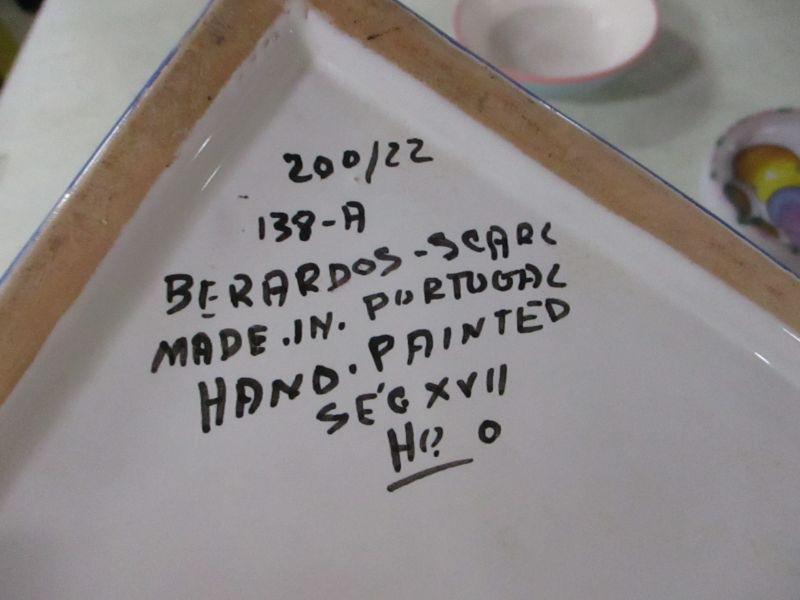 200/22
138-A
BERARDOS-SCARL
MADE.IN. PORTUGAL
HAND.PAINTED
SÉC XVII